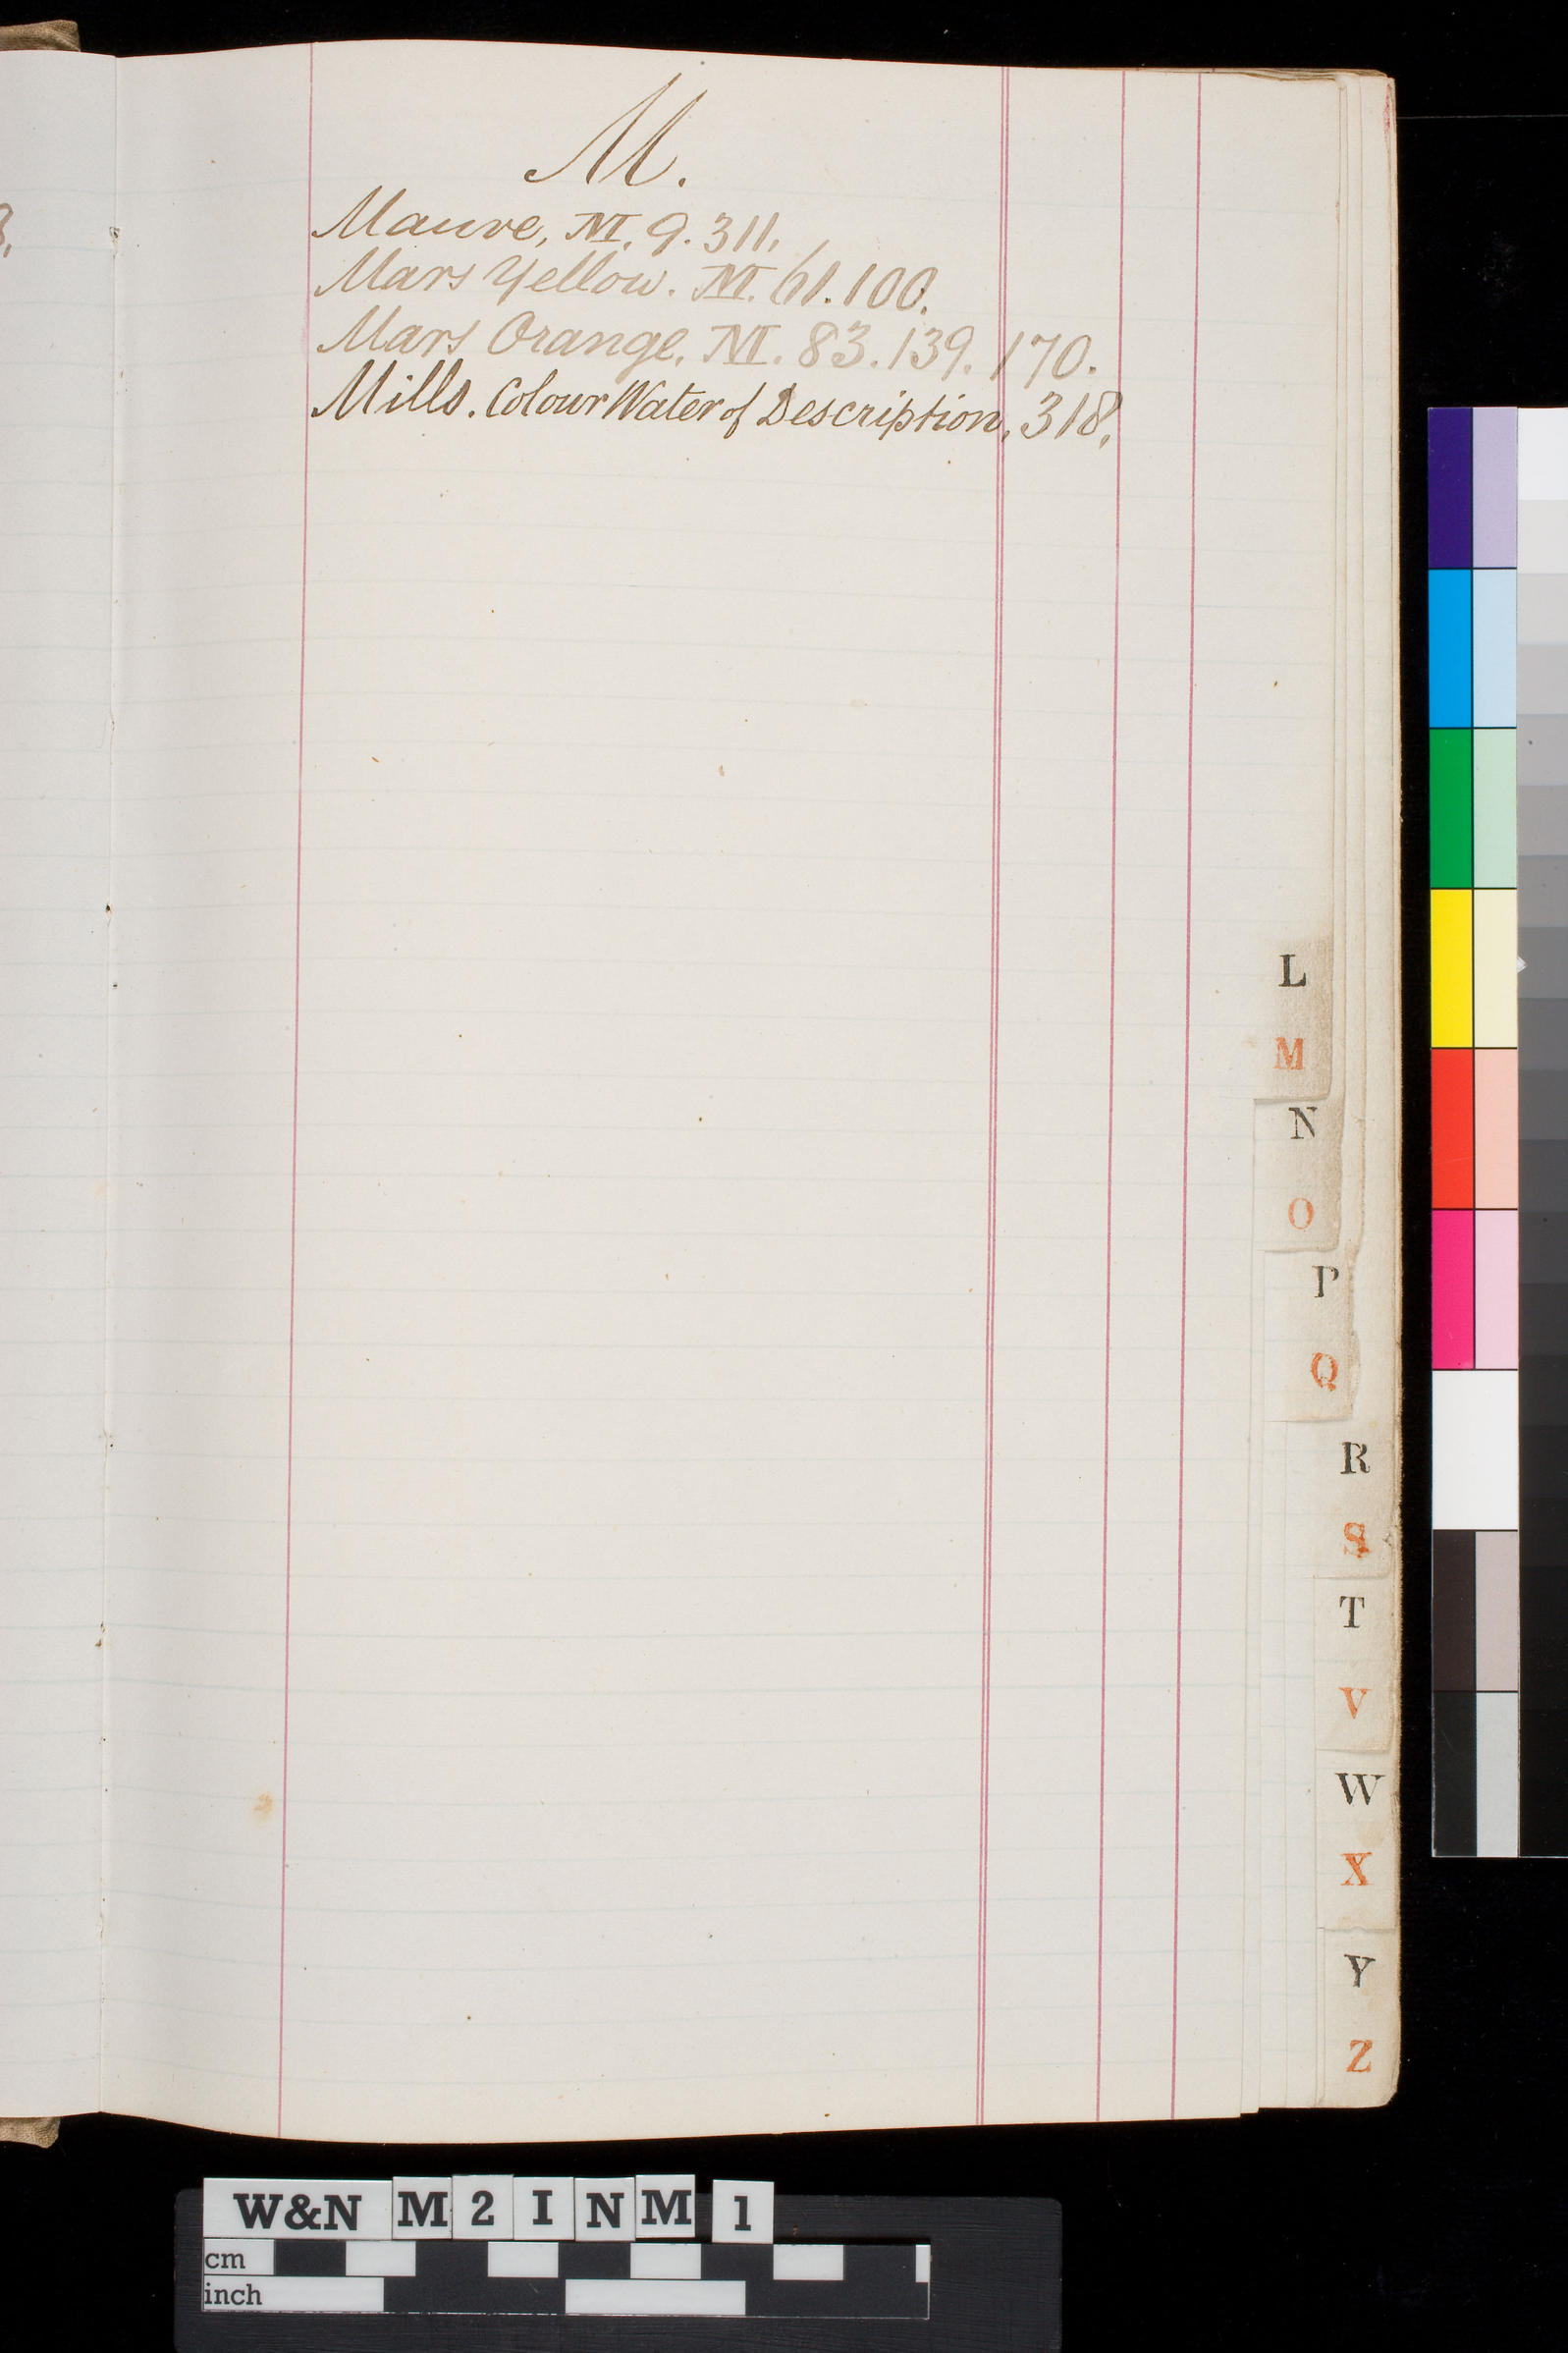 M.
Mauve, M. 9. 311,
Mars Yellow. M. 61. 100.
Mars Orange, M. 83. 139. 170.
Mills. Colour Water of Description, 318,
L
M
N
O
P
Q
R
S
T
V
W
X
Y
Z
W&N M 2 I N M 1
cm
inch